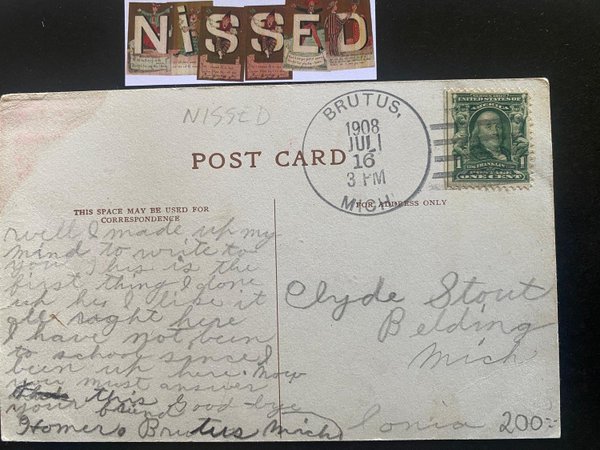 NISSED
NISSED
BRUTUS,
1908
JUL
16
3 PM
MICH
UNITED STATES OF AMERICA
FRANKLIN
1 POSTAGE 1
ONE CENT
POST CARD
THIS SPACE MAY BE USED FOR
CORRESPONDENCE
FOR ADDRESS ONLY
well I made up my
mind to write to
you This is the
first thing I done
up he I like it
all right here
I have not been
to school since I
been up here. now
you must answer
this Good-bye
your friend
Homer Brutus Mich
Clyde Stout
Belding
Mich
Ionia
200